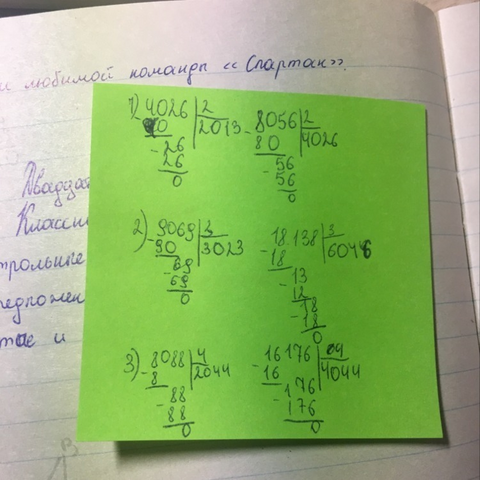 и любимой команды «Спартак».
1) 4026 | 2    8056 | 2
- 40 2013    - 80 4026
- 26    - 56
26    56
0    0
Двадца
Класс
2) 9069 | 3    18.138 | 3
- 90 3023    - 18 6046
- 69    - 13
69    12
0    - 18
18
0
трольные
редложен
и
3) 8088 | 4    16176 | 4
- 8 2044    - 16 4044
- 88    - 176
88    176
0    0